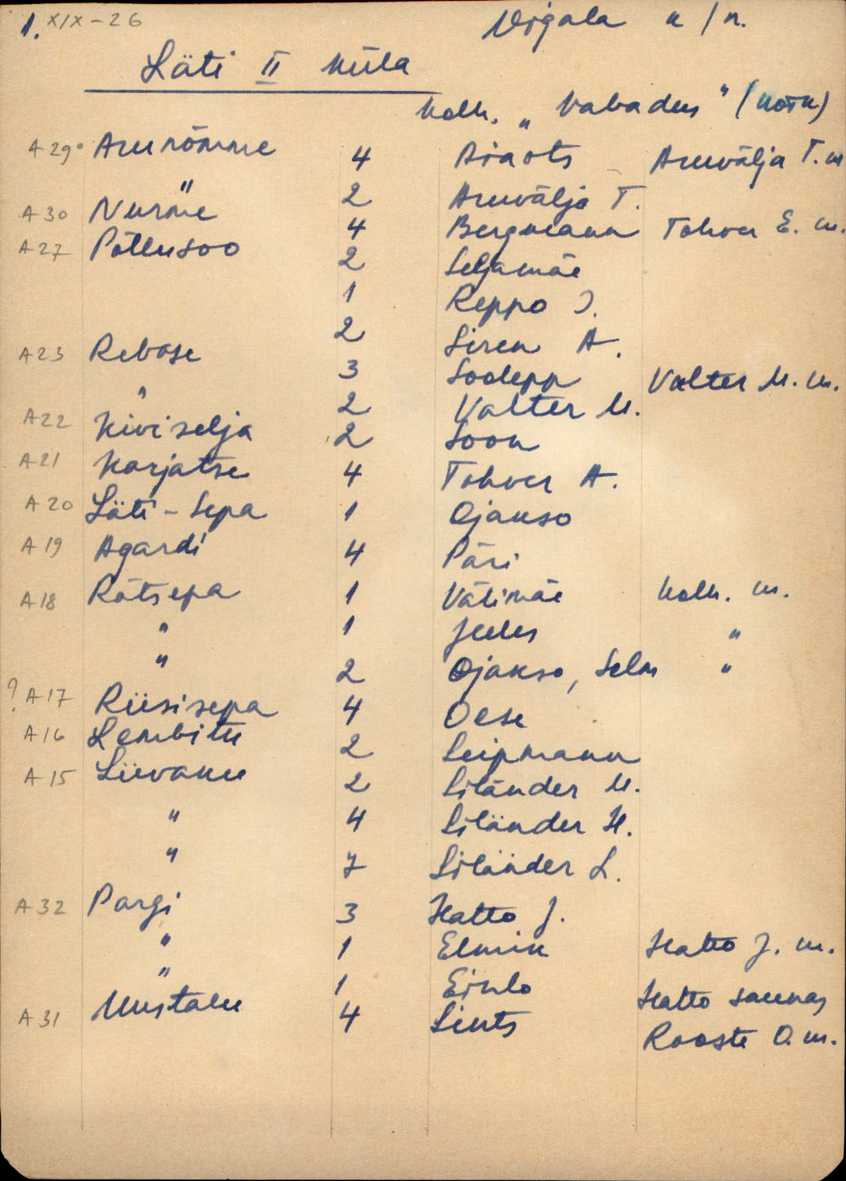 1. XIX-26 Vigala k/n.
Läti II küla
kolh. „Vabadus" (
A 29 Arunõmme 4 Araots Aruvälja T. m
" 2 Aruvälja T.
A 30 Nurme 4 Bergmann Tohver E. m.
A 27 Põllusoo 2 Seljamäe
1 Reppo J.
2 Siren A.
A 23 Rebase 3 Soolepp Valter M. m.
" 2 Valter M.
A 22 Kiviselja 2 Soon
A 21 Karjatse 4 Tohver A.
A 20 Läti-Sepa 1 Ojakso
A 19 Agardi 4 Päri
A 18 Rätsepa 1 Välimäe kolh. m.
" 1 Jeeles "
" 2 Ojakso, Selm "
? A 17 Riisisepa 4 Oese
A 16 Lembitu 2 Leipmann
A 15 Liivaku 2 Siländer M.
" 4 Siländer H.
" 7 Siländer L.
A 32 Pargi 3 Hatto J.
" 1 Elmik Hatto J. m.
" 1 Einlo Hatto saunas
A 31 Uustalu 4 Sints Rooste O. m.